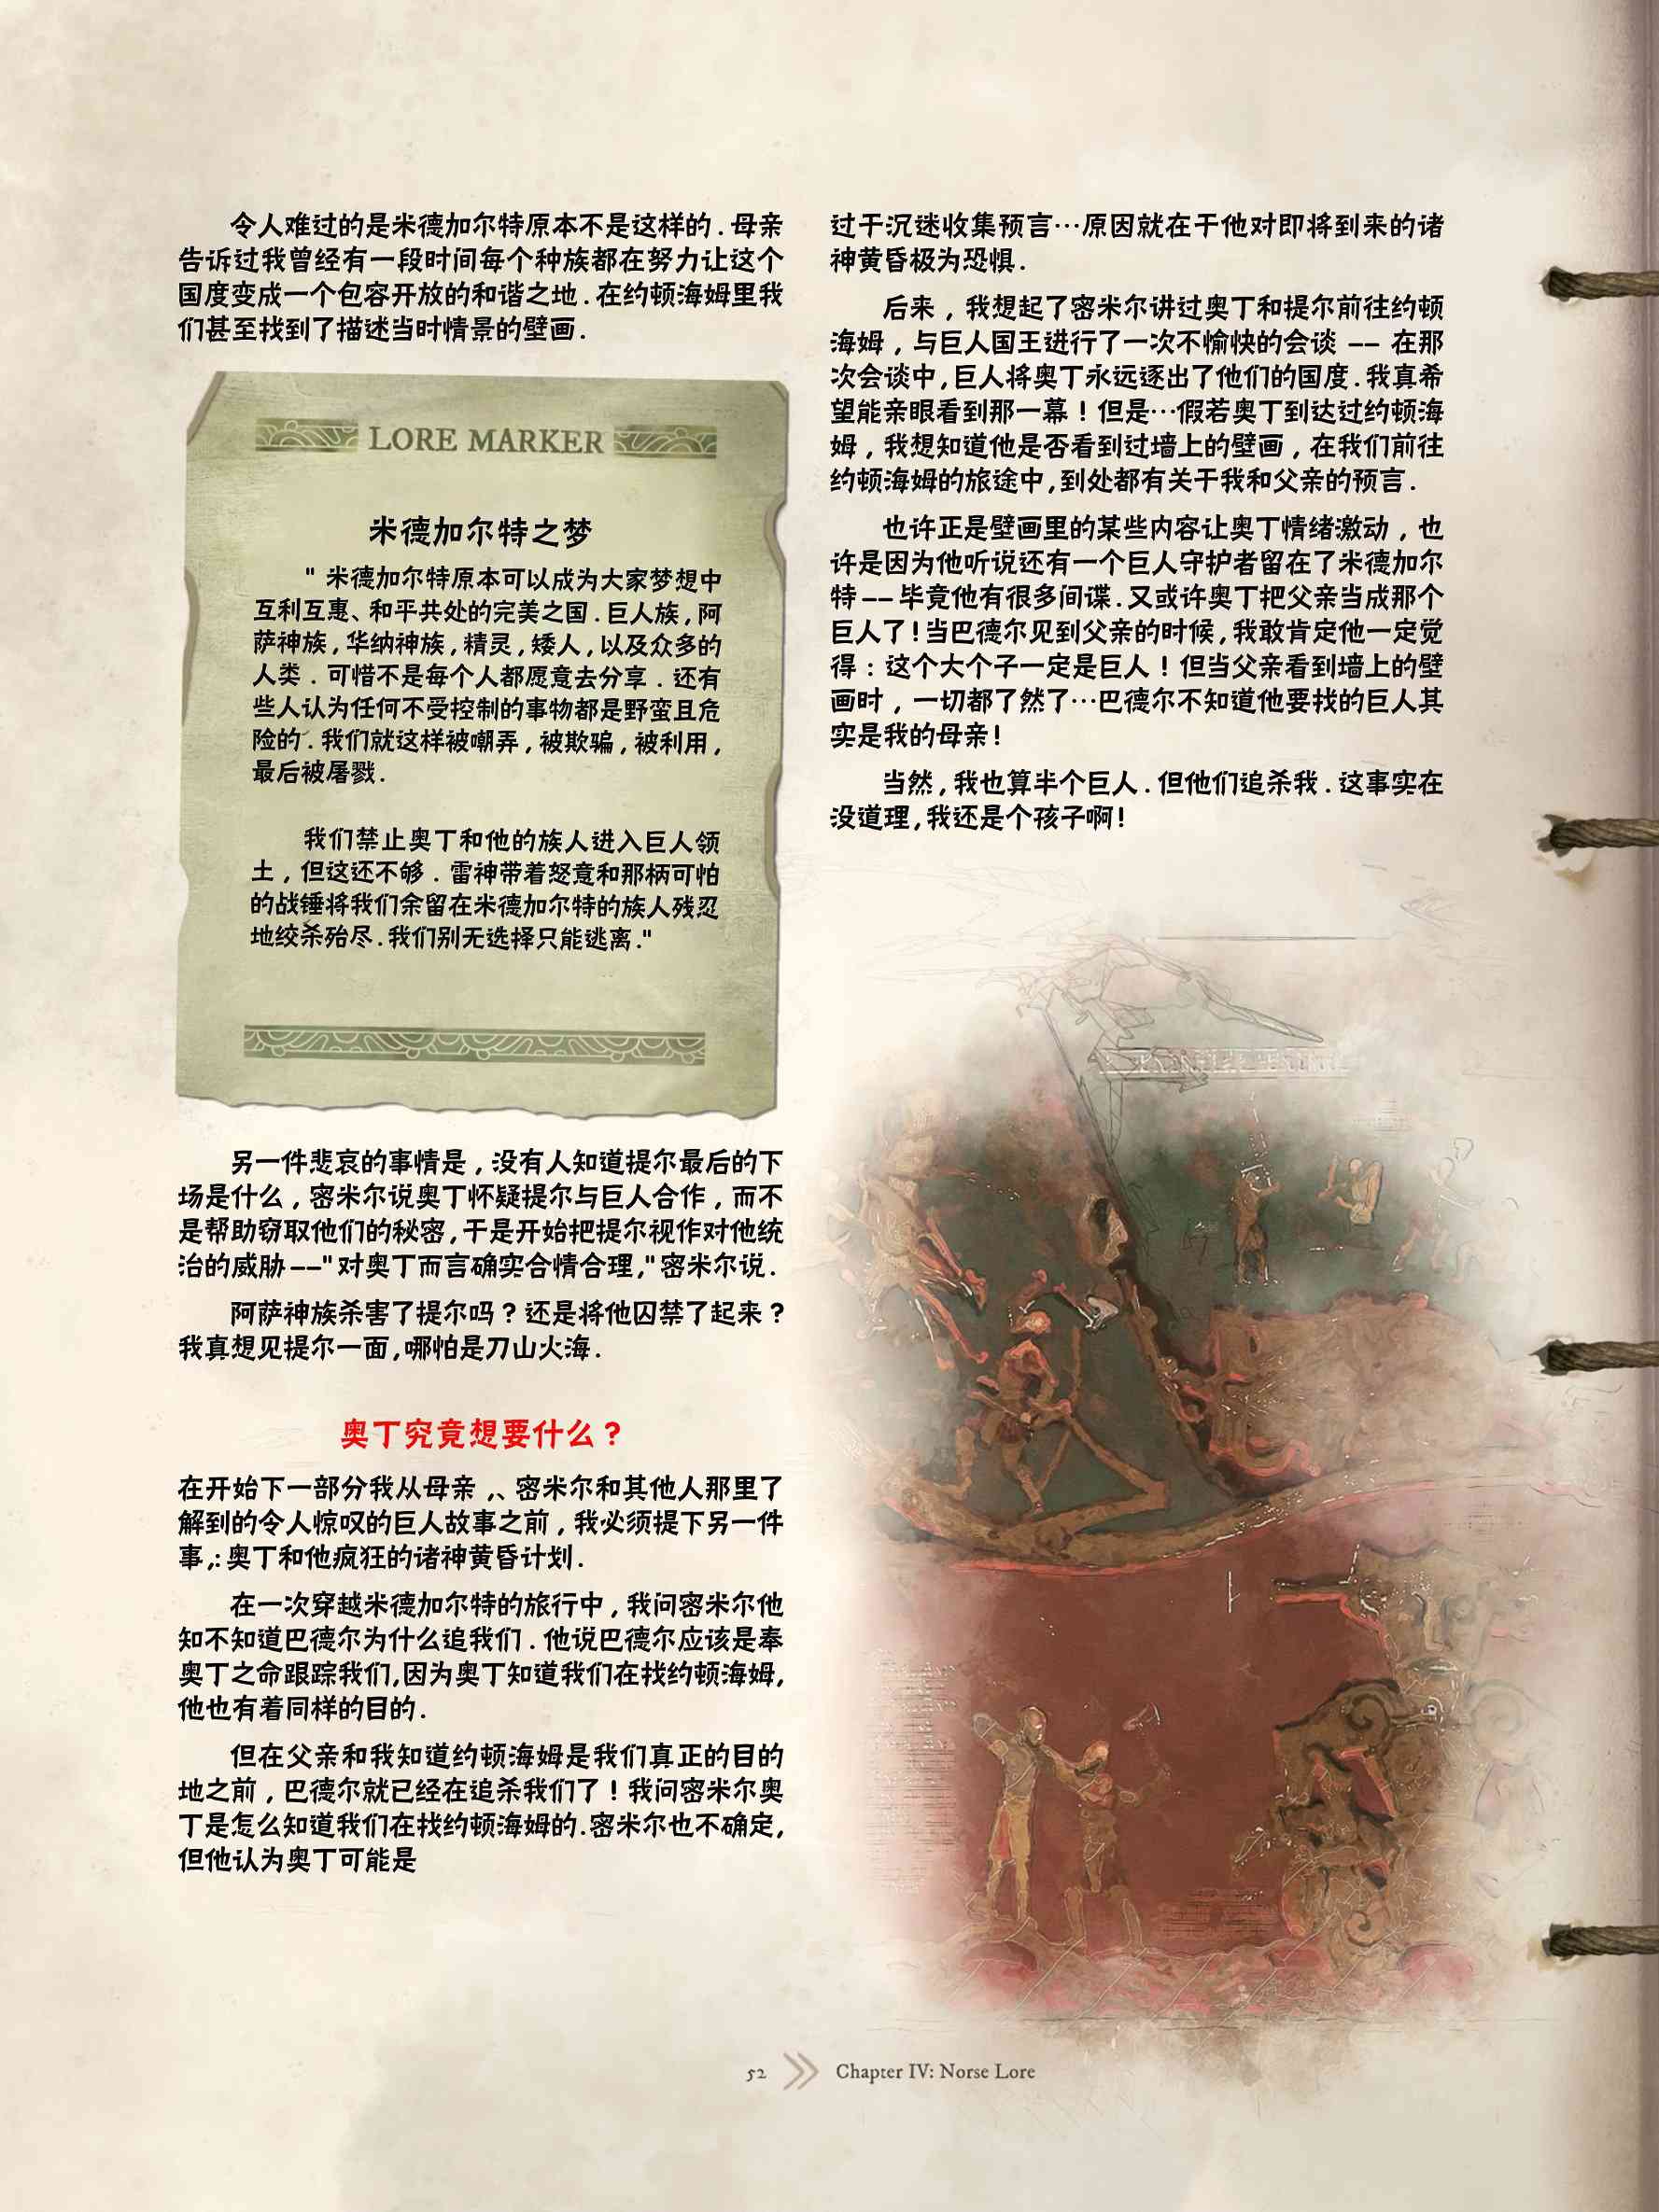 令人难过的是米德加尔特原本不是这样的.母亲
告诉过我曾经有一段时间每个种族都在努力让这个
国度变成一个包容开放的和谐之地.在约顿海姆里我
们甚至找到了描述当时情景的壁画.
LORE MARKER
米德加尔特之梦
"米德加尔特原本可以成为大家梦想中
互利互惠、和平共处的完美之国.巨人族,阿
萨神族,华纳神族,精灵,矮人,以及众多的
人类.可惜不是每个人都愿意去分享.还有
些人认为任何不受控制的事物都是野蛮且危
险的.我们就这样被嘲弄,被欺骗,被利用,
最后被屠戮.
我们禁止奥丁和他的族人进入巨人领
土,但这还不够.雷神带着怒意和那柄可怕
的战锤将我们余留在米德加尔特的族人残忍
地绞杀殆尽.我们别无选择只能逃离."
另一件悲哀的事情是,没有人知道提尔最后的下
场是什么,密米尔说奥丁怀疑提尔与巨人合作,而不
是帮助窃取他们的秘密,于是开始把提尔视作对他统
治的威胁--"对奥丁而言确实合情合理,"密米尔说.
阿萨神族杀害了提尔吗?还是将他囚禁了起来?
我真想见提尔一面,哪怕是刀山火海.
奥丁究竟想要什么?
在开始下一部分我从母亲,、密米尔和其他人那里了
解到的令人惊叹的巨人故事之前,我必须提下另一件
事,:奥丁和他疯狂的诸神黄昏计划.
在一次穿越米德加尔特的旅行中,我问密米尔他
知不知道巴德尔为什么追我们.他说巴德尔应该是奉
奥丁之命跟踪我们,因为奥丁知道我们在找约顿海姆,
他也有着同样的目的.
但在父亲和我知道约顿海姆是我们真正的目的
地之前,巴德尔就已经在追杀我们了!我问密米尔奥
丁是怎么知道我们在找约顿海姆的.密米尔也不确定,
但他认为奥丁可能是
过于沉迷收集预言…原因就在于他对即将到来的诸
神黄昏极为恐惧.
后来,我想起了密米尔讲过奥丁和提尔前往约顿
海姆,与巨人国王进行了一次不愉快的会谈 -- 在那
次会谈中,巨人将奥丁永远逐出了他们的国度.我真希
望能亲眼看到那一幕!但是…假若奥丁到达过约顿海
姆,我想知道他是否看到过墙上的壁画,在我们前往
约顿海姆的旅途中,到处都有关于我和父亲的预言.
也许正是壁画里的某些内容让奥丁情绪激动,也
许是因为他听说还有一个巨人守护者留在了米德加尔
特--毕竟他有很多间谍.又或许奥丁把父亲当成那个
巨人了!当巴德尔见到父亲的时候,我敢肯定他一定觉
得:这个大个子一定是巨人!但当父亲看到墙上的壁
画时,一切都了然了…巴德尔不知道他要找的巨人其
实是我的母亲!
当然,我也算半个巨人.但他们追杀我.这事实在
没道理,我还是个孩子啊!
52 Chapter IV: Norse Lore